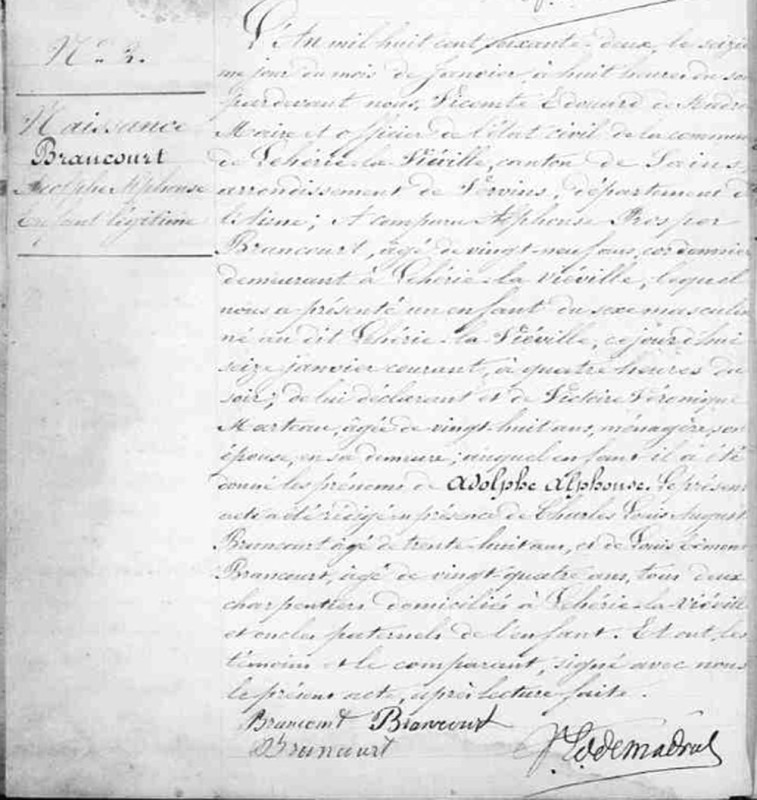 N° 3.
Naissance
Brancourt
Adolphe Alphonse
Enfant légitime
L'An mil huit cent soixante-deux, le seizi
me jour du mois de Janvier, à huit heures du soir
par devant nous, Vicomte Edouard de Madri
Maire et officier de l'état civil de la commun
de Lehérie-la-Viéville, canton de Sains,
arrondissement de Vervins, département d
l'Aisne; A comparu Alphonse Prosper
Brancourt, âgé de vingt-neuf ans, cordonnier
demeurant à Lehérie-la-Viéville, lequel
nous a présenté un enfant du sexe masculin
né au dit Lehérie-la-Viéville, cejourd'hui
seize janvier courant, à quatre heures du
soir; de lui déclarant et de Victoire Véronique
Marteau, âgée de vingt-huit ans, ménagère, son
épouse, en sa demeure; auquel enfant il a été
donné les prénoms de Adolphe Alphonse. Le présent
acte a été rédigé en présence de Charles Louis August
Brancourt âgé de trente-huit ans, et de Louis
Brancourt, âgé de vingt-quatre ans, tous deux
charpentiers domiciliés à Lehérie-la-Viéville
et oncles paternels de l'enfant. Et ont les
témoins et le comparant, signé avec nous
le présent acte, après lecture faite.
Brancourt Brancourt
Brancourt